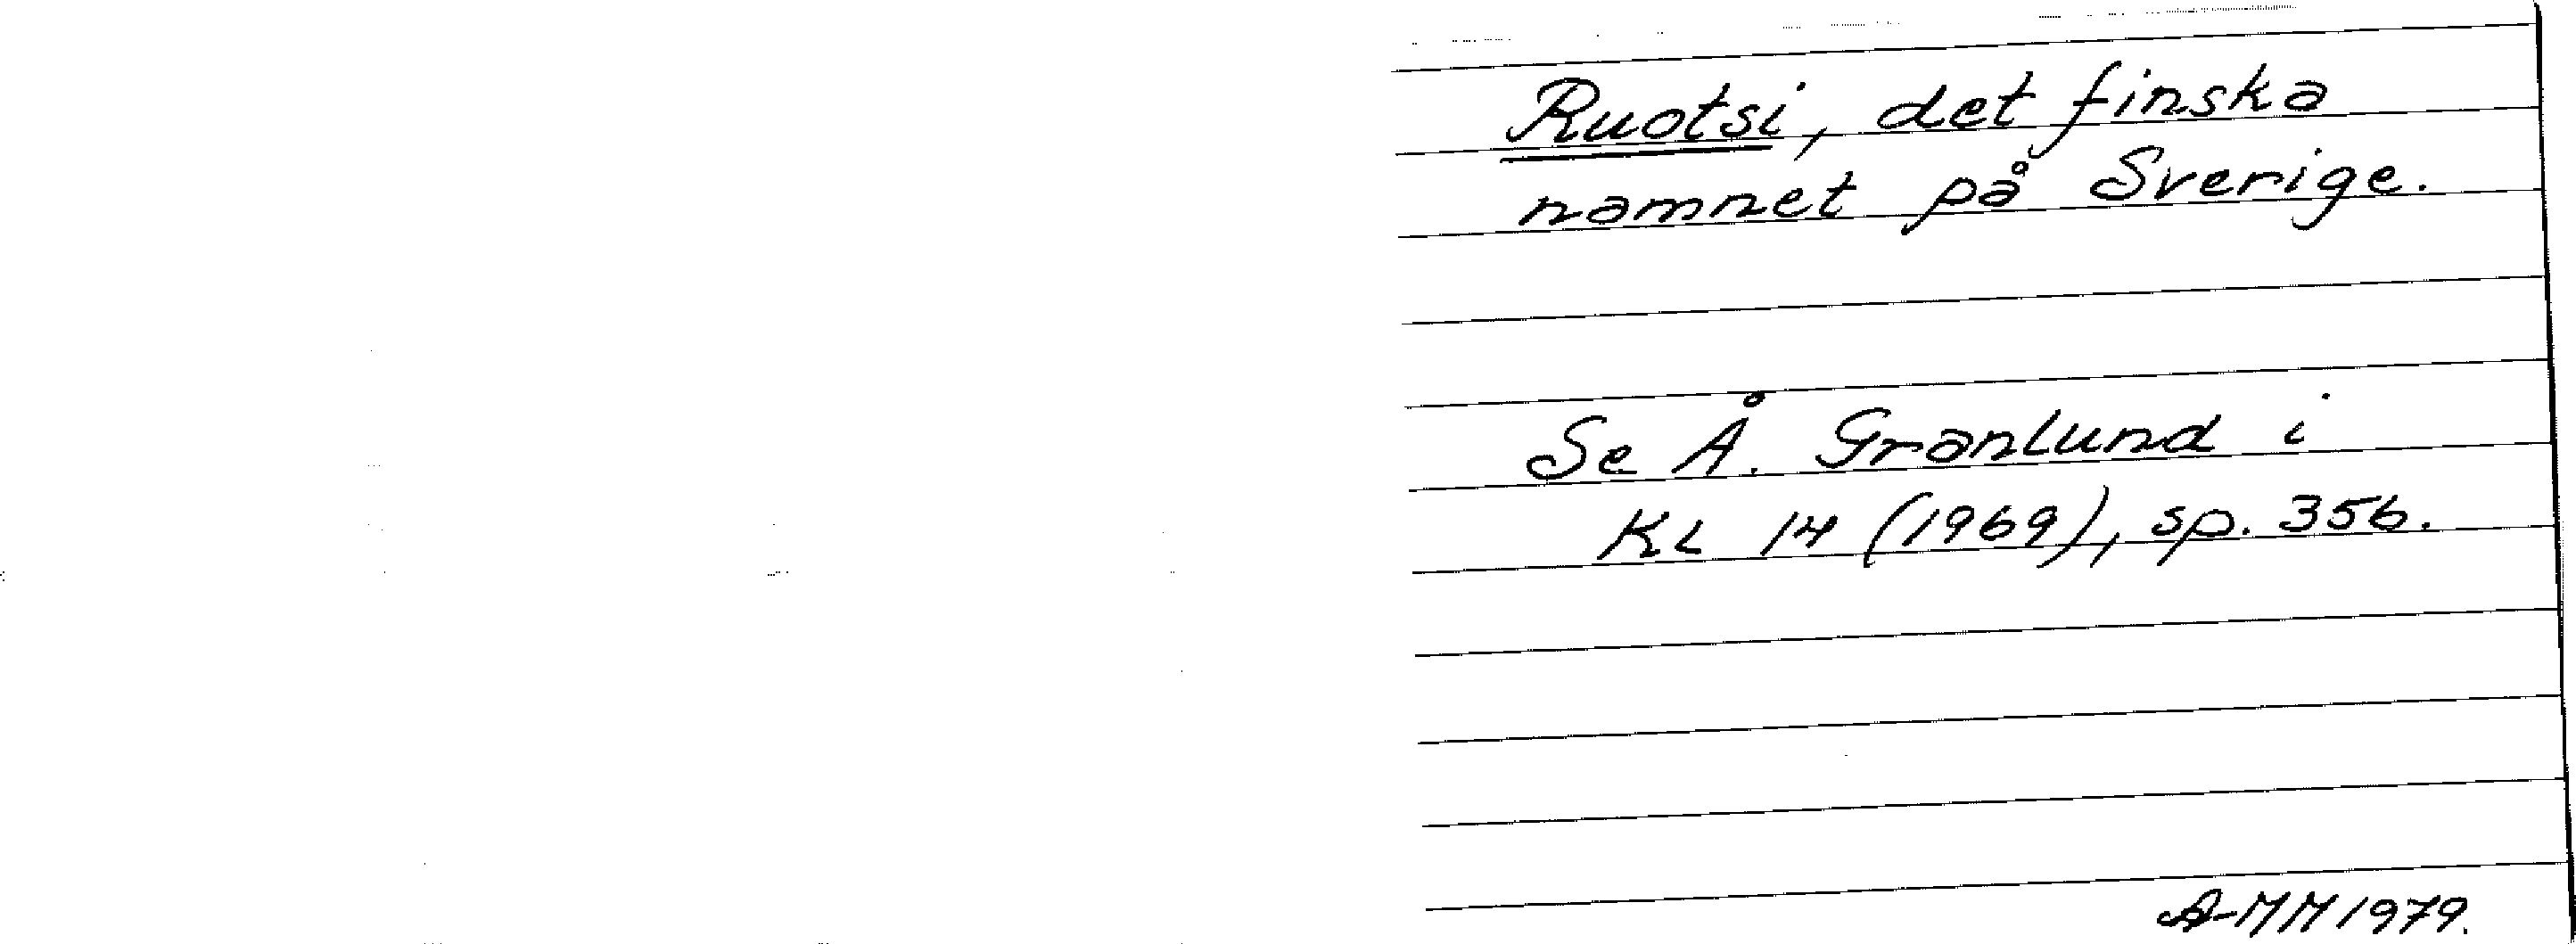 Ruotsi, det finska
namnet på Sverige.
Se Å. Granlund i
KL 14 (1969), sp. 356.
A-MM 1979.